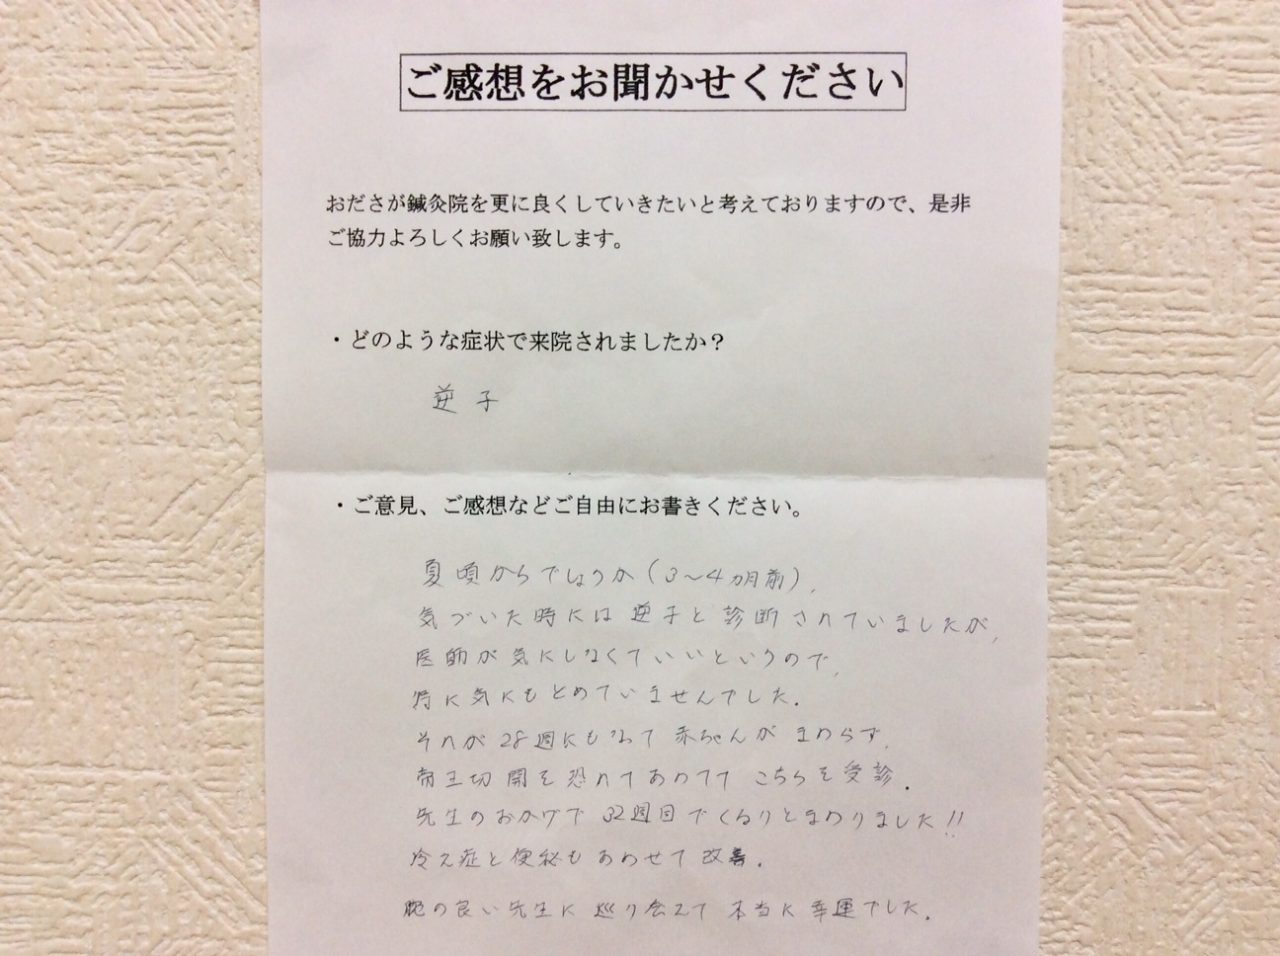 ご感想をお聞かせください
おださが鍼灸院を更に良くしていきたいと考えておりますので、是非
ご協力よろしくお願い致します。
・どのような症状で来院されましたか？
逆子
・ご意見、ご感想などご自由にお書きください。
夏頃からでしょうか(3～4ヵ月前)、
気づいた時には逆子と診断されていましたが、
医師が気にしなくていいというので、
特に気にもとめていませんでした。
それが28週にもなって赤ちゃんがまわらず、
帝王切開を恐れてあわててこちらを受診。
先生のおかげで32週目でくるりとまわりました!!
冷え症と便秘もあわせて改善。
腕の良い先生に巡り会えて本当に幸運でした。